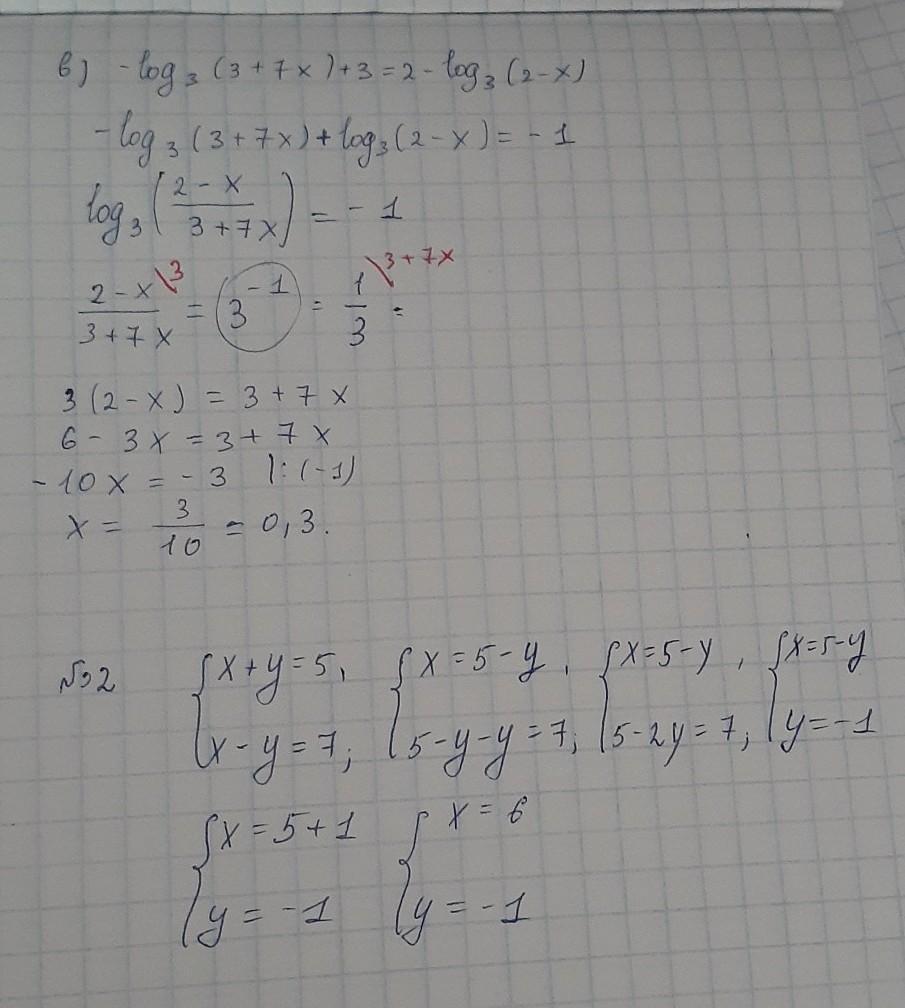 в) -log₃ (3 + 7x) + 3 = 2 - log₃ (2-x)
-log₃ (3 + 7x) + log₃ (2 - x) = - 1
log₃ ((2 - x)/(3 + 7x)) = - 1
(2 - x)/(3 + 7x) \3 = 3⁻¹ = 1/3 \3 + 7x =
3 (2 - x) = 3 + 7x
6 - 3x = 3 + 7x
-10x = - 3 |: (-1)
x = 3/10 = 0,3.
№2 {x + y = 5, {x = 5 - y, {x = 5 - y, {x = 5 - y
x - y = 7; 5 - y - y = 7; 5 - 2y = 7; y = -1
{x = 5 + 1 {x = 6
y = -1 y = -1